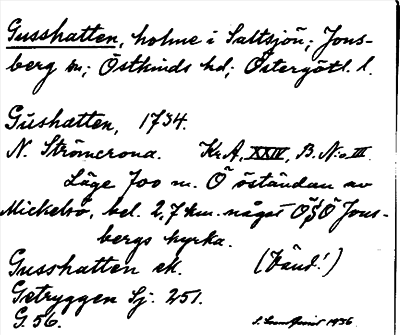 Gusshatten, holme i Saltsjön; Jons-
berg sn; Östkinds hd; Östergötl. l.
Gushatten, 1734.
N. Strömcrona. Kr. A, XXIV, B. No III.
Läge 700 m. Ö öständan av
Mickelsö, bel. 2,7 km. något ÖSÖ Jons-
bergs kyrka.
Gusshatten ek. (Känd!)
Getryggen Sj. 251.
G. 56. 1936